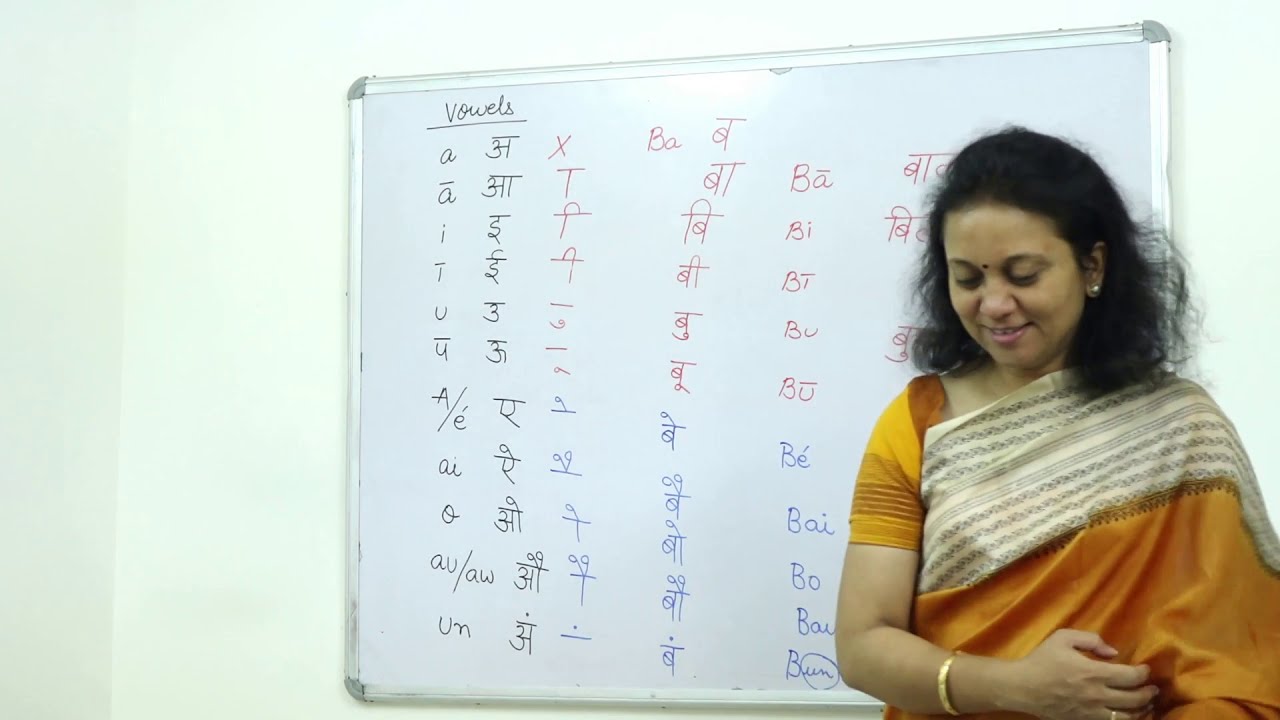 Vowels
a अ X Ba ब
ā आ ा बा Bā
i इ ि बि Bi
ī ई ी बी Bī
u उ ु बु Bu
ū ऊ ू बू Bū
A/é ए े बे Bé
ai ऐ ै बै Bai
o ओ ो बो Bo
au/aw औ ौ बौ Bau
un अं ं बं Bun